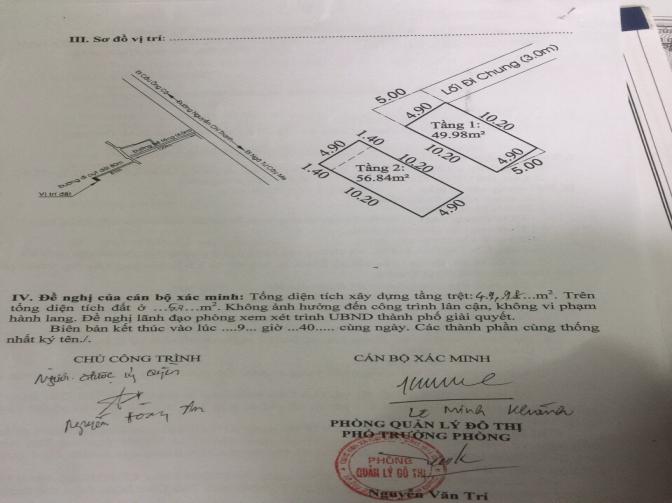 III. Sơ đồ vị trí:
Đi Cầu Ông Cộ
Đường Nguyễn Chí Thanh
Đi Ngã Tư Cây Me
Vị trí đất
Lối Đi Chung (3.0m)
5.00
4.90
10.20
Tầng 1:
49.98m²
10.20
4.90
5.00
4.90
1.40
10.20
1.40
Tầng 2:
56.84m²
10.20
4.90
IV. Đề nghị của cán bộ xác minh: Tổng diện tích xây dựng tầng trệt: 49,98...m². Trên
tổng diện tích đất ở ...50...m². Không ảnh hưởng đến công trình lân cận, không vi phạm
hành lang. Đề nghị lãnh đạo phòng xem xét trình UBND thành phố giải quyết.
Biên bản kết thúc vào lúc ....9... giờ ...40..... cùng ngày. Các thành phần cùng thống
nhất ký tên./.
CHỦ CÔNG TRÌNH
CÁN BỘ XÁC MINH
Người được ủy quyền
Nguyễn Hoàng An
Lê Minh Khánh
PHÒNG QUẢN LÝ ĐÔ THỊ
PHÓ TRƯỞNG PHÒNG
PHÒNG
QUẢN LÝ ĐÔ THỊ
Nguyễn Văn Trí